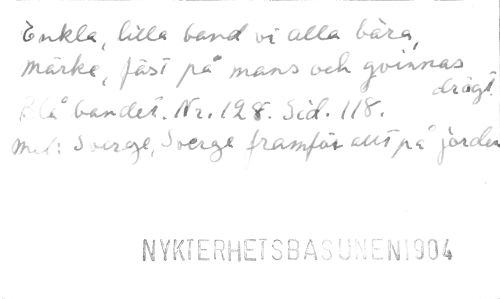 Enkla, lilla band vi alla bära,
märke, fäst på mans och qvinnas
drägt.
Blå bandet. Nr. 128. Sid. 118.
Mel: Sverge, Sverge framför allt på jorden
NYKTERHETSBASUNEN 1904